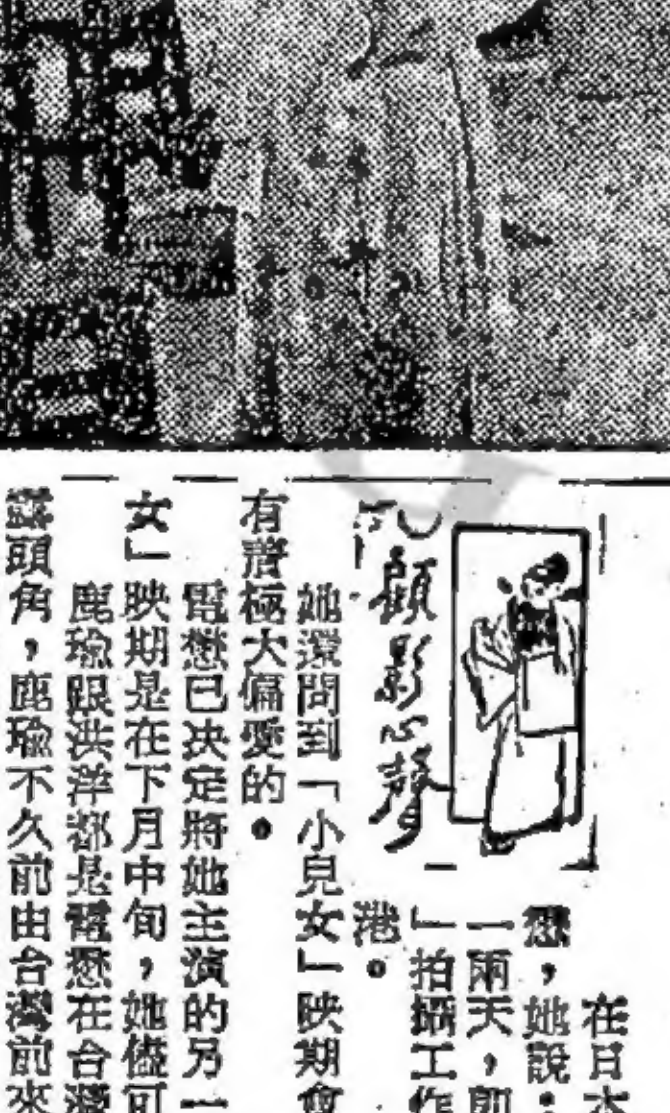 顧影心聲
在日本
懋,她說:
一兩天,即
」拍攝工作
港。
她還問到「小兒女」映期會
有着極大偏愛的。
電懋已決定將她主演的另一
女」映期是在下月中旬,她儘可
鹿瑜跟洪洋都是電懋在台灣
露頭角,鹿瑜不久前由台灣前來